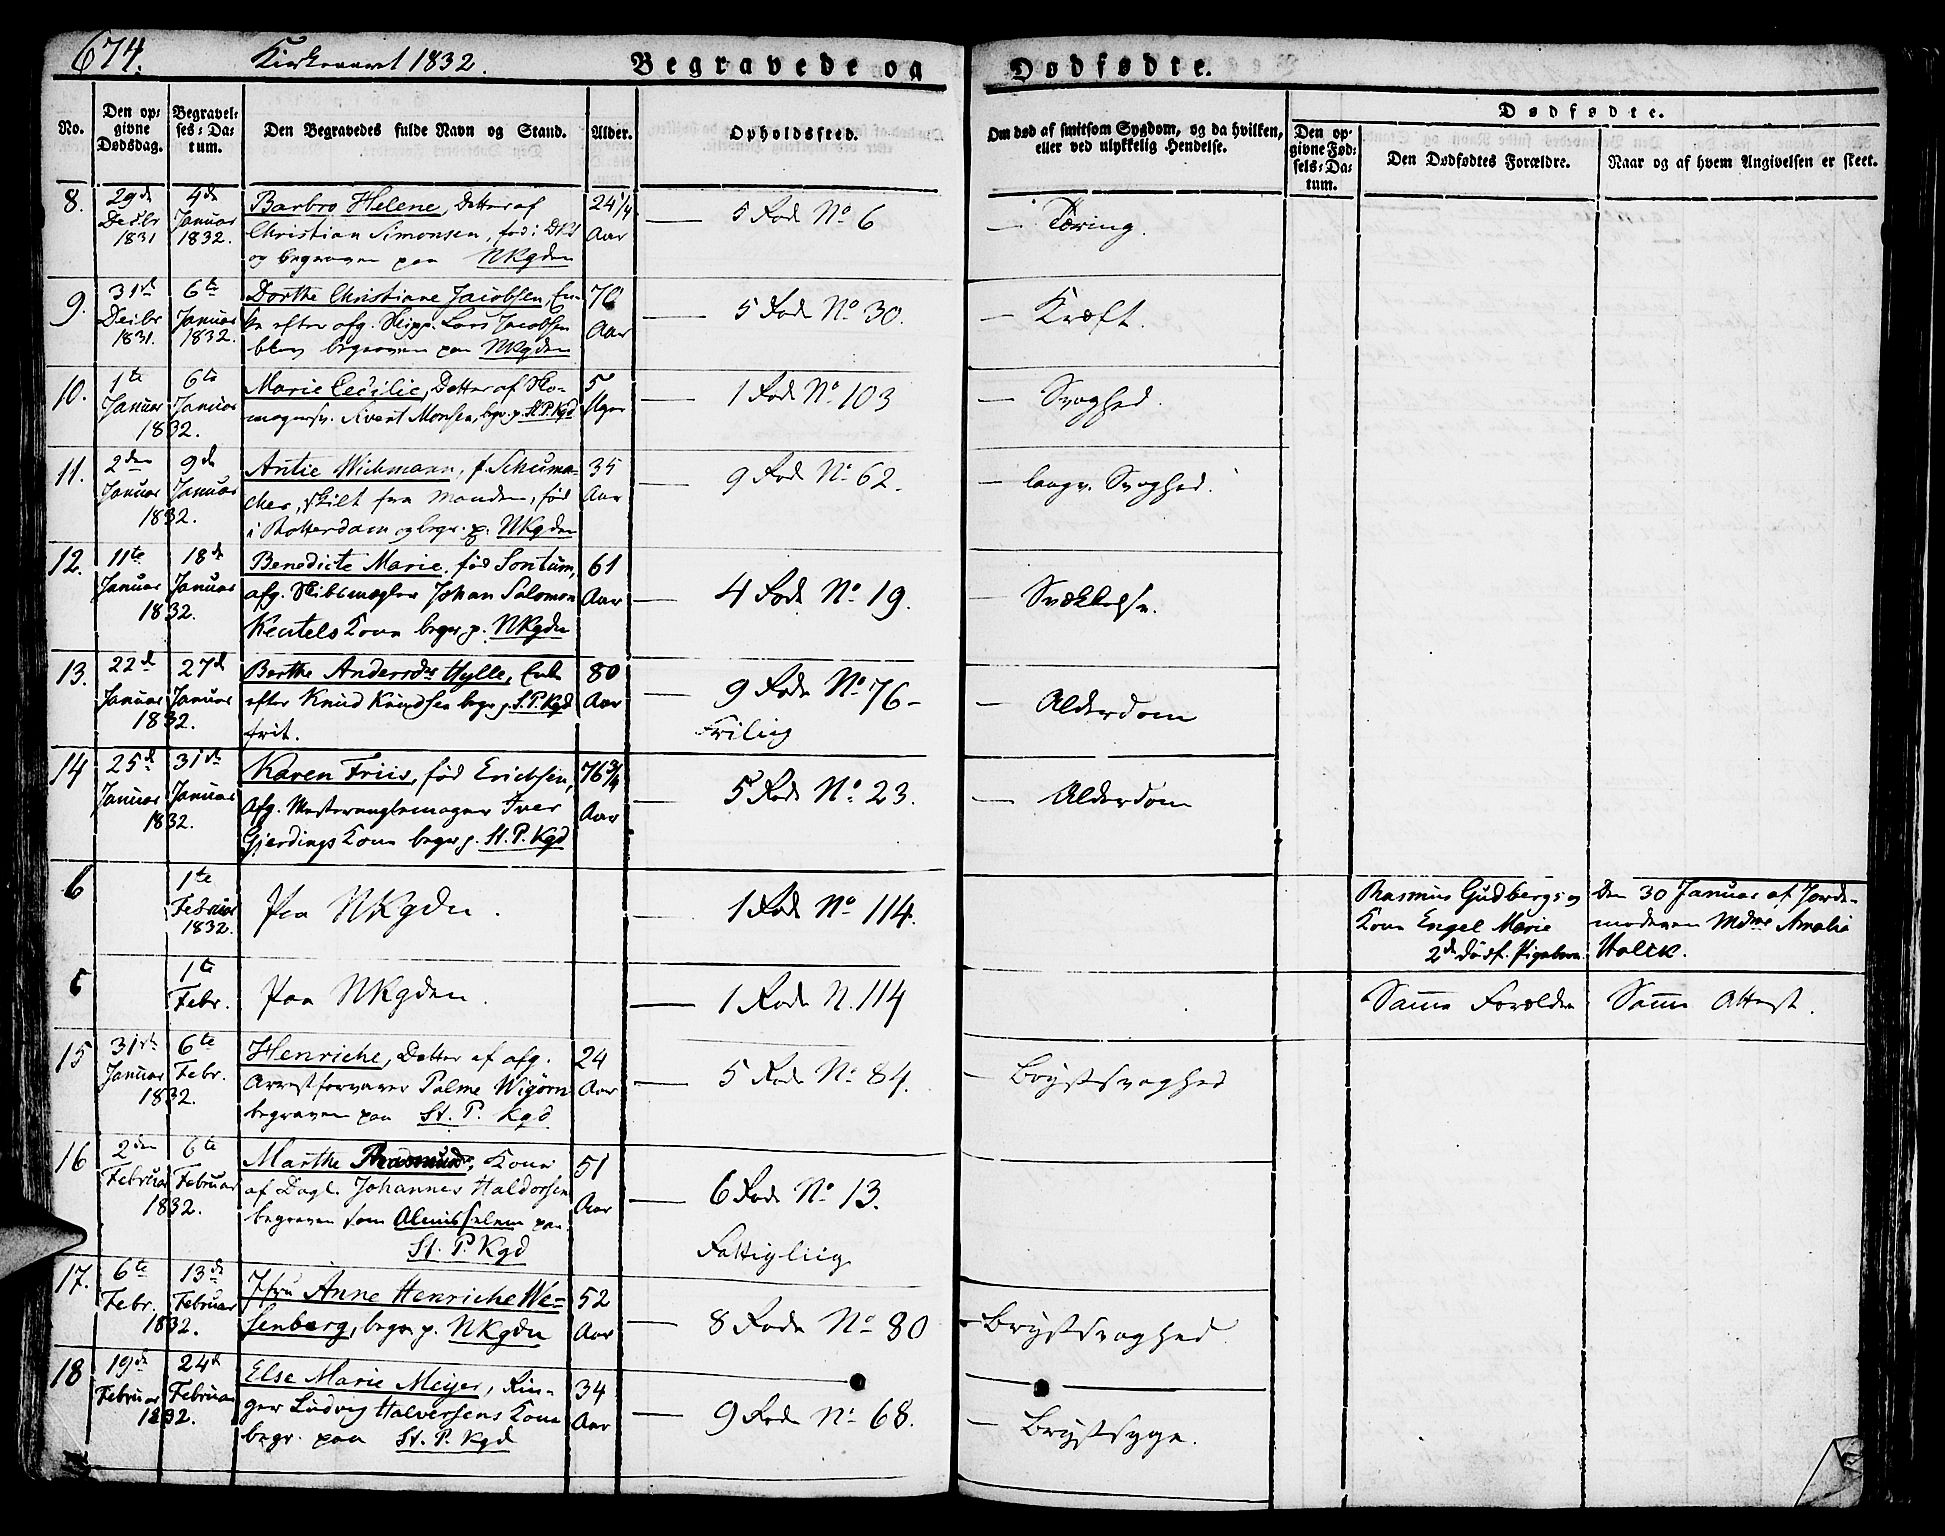 674. Kirkeaaret 1832. Begravede og Dødfødte.
No.
Den op-
givne
Dødsdag.
Begravel-
ses-Da-
tum.
Den Begravedes fulde Navn og Stand.
Alder.
Opholdssted.
Om død af smitsom Sygdom, og da hvilken,
eller ved ulykkelig Hendelse.
Dødfødte.
Den op-
givne Fød-
sels-Da-
tum.
Den Dødfødtes Forældre.
Naar og af hvem Angivelsen er skeet.
8.
29de
Decbr
1831
4de
Januar
1832.
Barbro Helene, Datter af
Christian Simonsen, fød i
og begraven paa NKgden
24 1/4
Aar
5 Rode No 6
Tæring.
9.
31te
Decbr
1831.
6te
Januar
1832.
Dorthe Christiane Jacobsen, En-
ke efter afg. Skipp. Lars Jacobsen
blev begraven paa NKgden
70
Aar
5 Rode No 30.
Kræft.
10.
1te
Januar
6te
Januar
1832.
Marie Cecilie, Datter af Sko-
magersv. Sivert Monsen, begr. p. St. P. Kgd
5
Uger
1 Rode No 103
Svaghed.
11.
2den
Januar
9de
Januar
1832.
Antie Wichmann, f. Schuma-
cher, skilt fra Manden, fød
i Rotterdam og begr. p. NKgden
35
Aar
9 Rode No 62.
langv. Svaghed.
12.
11te
Januar
18de
Januar
1832.
Benedicte Marie, fød Sontum,
afg. Skibsmægler Johan Salomon
Keutels Kone begr. p. NKgden
61
Aar
4 Rode No 19.
Svækkelse.
13.
22de
Januar
27de
Januar
1832.
Berthe Andersdr Hylle, Enke
efter Knud Knudsen begr. p. St. P. Kgd
frit.
80
Aar
9 Rode No 76
Frilig
Alderdom
14
25de
Januar
31te
Januar
1832.
Karen Friis, fød Erichsen,
afg. Mesteranglemager Iver
Gjerdings Kone begr. p. St. P. Kgd
76 3/4
Aar
5 Rode No 23.
Alderdom
6
1te
Februar
1832.
Paa NKgden.
1 Rode No 114.
Rasmus Gudbergs og
Kone Engel Marie
2de dødf. Pigebørn.
Den 30 Januar af Jorde-
moderen Mdme Amalia
Holck.
6
1te
Febr.
Paa NKgden.
1 Rode N. 114
Same Forældre
Same Attest.
15
31te
Januar
6te
Febr.
1832.
Henriche, Datter af afg.
Arrestforvarer Palme Wigörn
begraven paa St. P. Kgd
24
Aar
5 Rode No 84.
Brystsvaghed
16
2den
Februar
6te
Februar
1832.
Marthe Rasmusdr, Kone
af Dagl. Johannes Haldorsen
begraven som Almisselem paa
St. P. Kgd
51
Aar
6 Rode No 13.
Fattigliig
17.
6te
Febr.
13de
Februar
1832.
Jfru Anne Henriche We-
senberg, begr. p. NKgden
52
Aar
8 Rode No 80
Brystsvaghed.
18
19de
Februar
24de
Februar
1832.
Else Marie Meyer, Rin-
ger Ludvig Halversens Kone
begr. paa St. P. Kgd
34
Aar
9 Rode No 68.
Brystsyge.